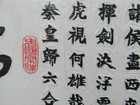 侯盡
揮劍決浮
虎視何雄哉
秦皇掃六合